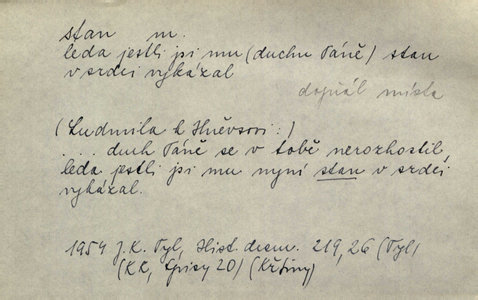 stan m.
leda jestli jsi mu (duchu Páně) stan
v srdci vykázal
dopřál místa
(Ludmila k Hněvsovi:)
... duch Páně se v tobě nerozhostil,
leda jestli jsi mu nyní stan v srdci
vykázal.
1954 J. K. Tyl, Hist. dram. 219, 26 (Tyl)
(KK, Spisy 20) (Křtiny)